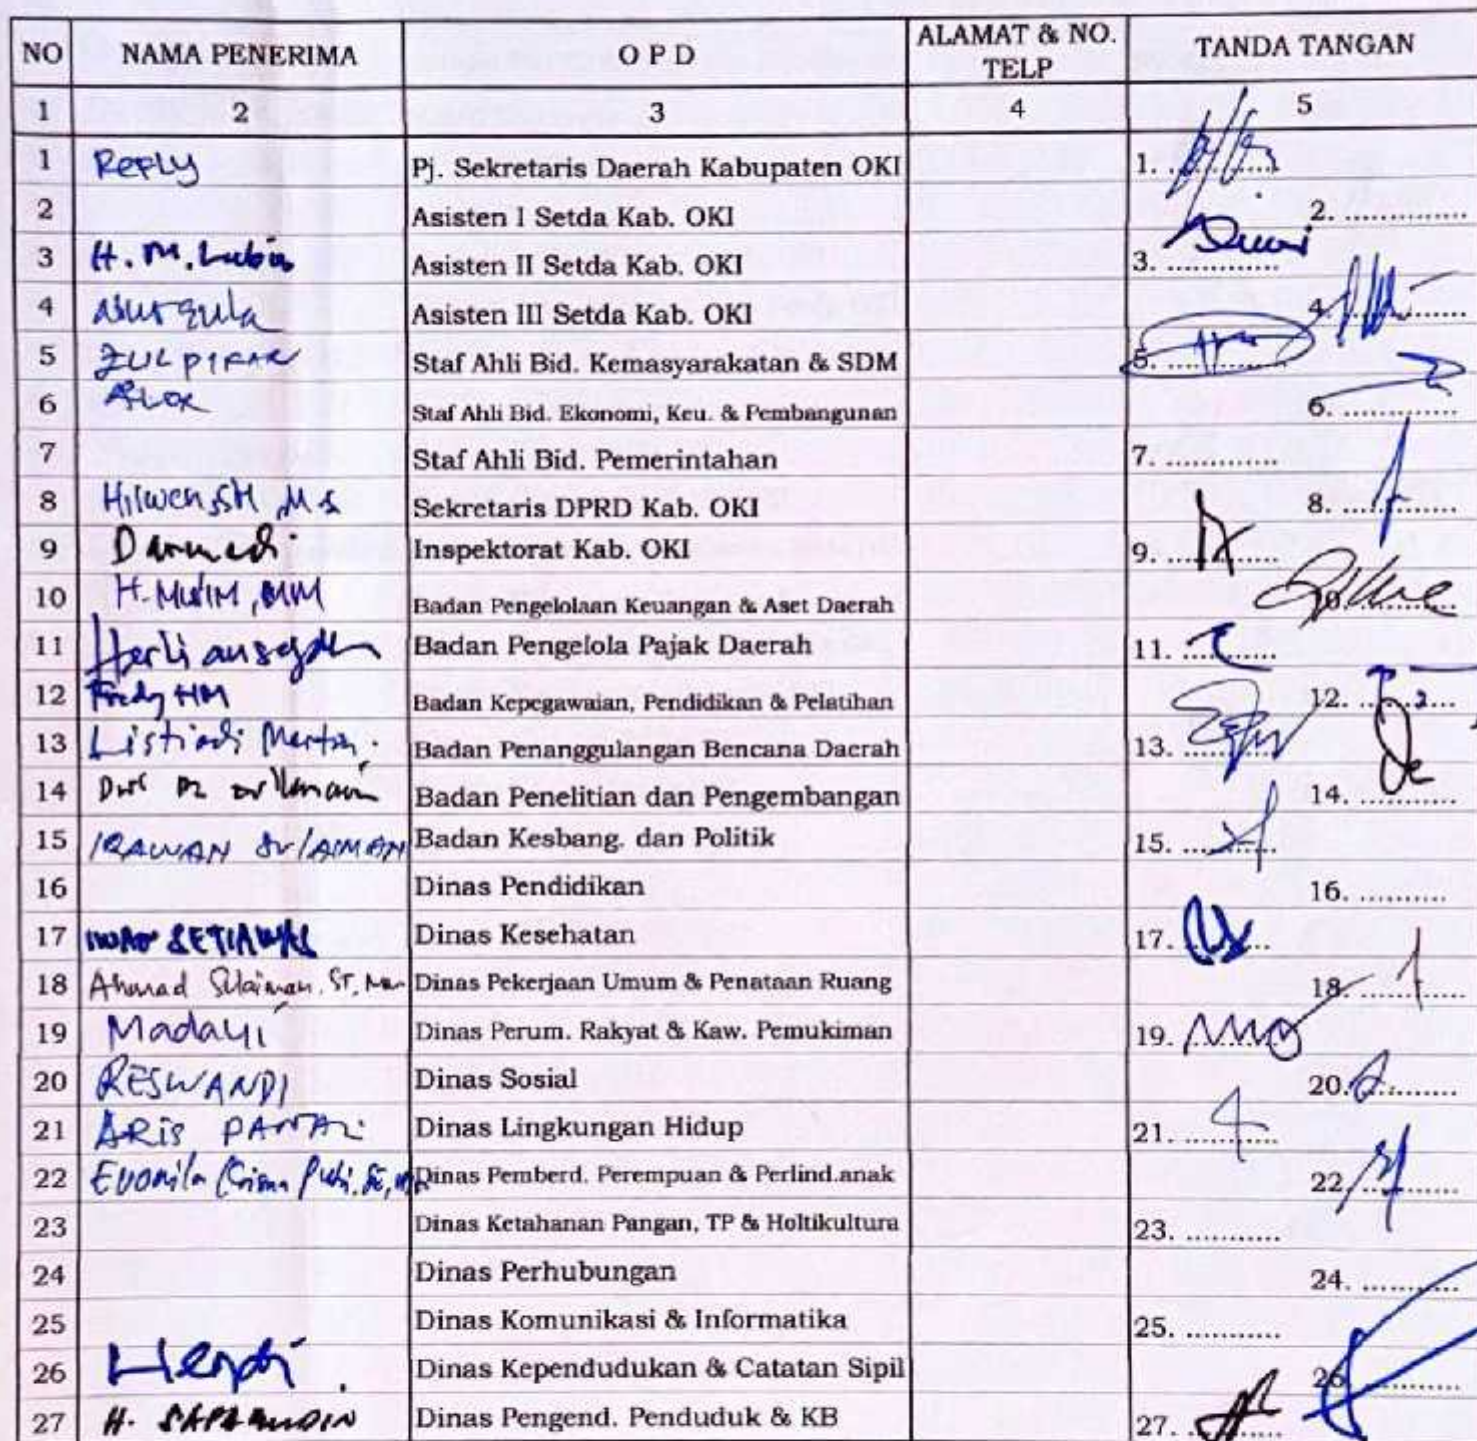 NO NAMA PENERIMA O P D ALAMAT & NO. TELP TANDA TANGAN
1 2 3 4 5
1 REFLY Pj. Sekretaris Daerah Kabupaten OKI 1. ............
2 Asisten I Setda Kab. OKI 2. ............
3 H. M. Lubis Asisten II Setda Kab. OKI 3. ............
4 Asisten III Setda Kab. OKI 4. ............
5 ZULPIKAR Staf Ahli Bid. Kemasyarakatan & SDM 5. ............
6 Staf Ahli Bid. Ekonomi, Keu. & Pembangunan 6. ............
7 Staf Ahli Bid. Pemerintahan 7. ............
8 Hilwen, SH, M.S Sekretaris DPRD Kab. OKI 8. ............
9 Darmadi Inspektorat Kab. OKI 9. ............
10 H. MUIM, MM Badan Pengelolaan Keuangan & Aset Daerah 10. ............
11 Herliansyah Badan Pengelola Pajak Daerah 11. ............
12 Fredy HM Badan Kepegawaian, Pendidikan & Pelatihan 12. ............
13 Listiadi Martin. Badan Penanggulangan Bencana Daerah 13. ............
14 Badan Penelitian dan Pengembangan 14. ............
15 IRAWAN SULAIMAN Badan Kesbang. dan Politik 15. ............
16 Dinas Pendidikan 16. ............
17 IWAN SETIAWAN Dinas Kesehatan 17. ............
18 Ahmad Sulaiman. ST, Dinas Pekerjaan Umum & Penataan Ruang 18. ............
19 Madayi Dinas Perum. Rakyat & Kaw. Pemukiman 19. ............
20 RESWANDI Dinas Sosial 20. ............
21 ARIS PANANI Dinas Lingkungan Hidup 21. ............
22 Dinas Pemberd. Perempuan & Perlind.anak 22. ............
23 Dinas Ketahanan Pangan, TP & Holtikultura 23. ............
24 Dinas Perhubungan 24. ............
25 Dinas Komunikasi & Informatika 25. ............
26 Hendri Dinas Kependudukan & Catatan Sipil 26. ............
27 H. SAPARUDIN Dinas Pengend. Penduduk & KB 27. ............